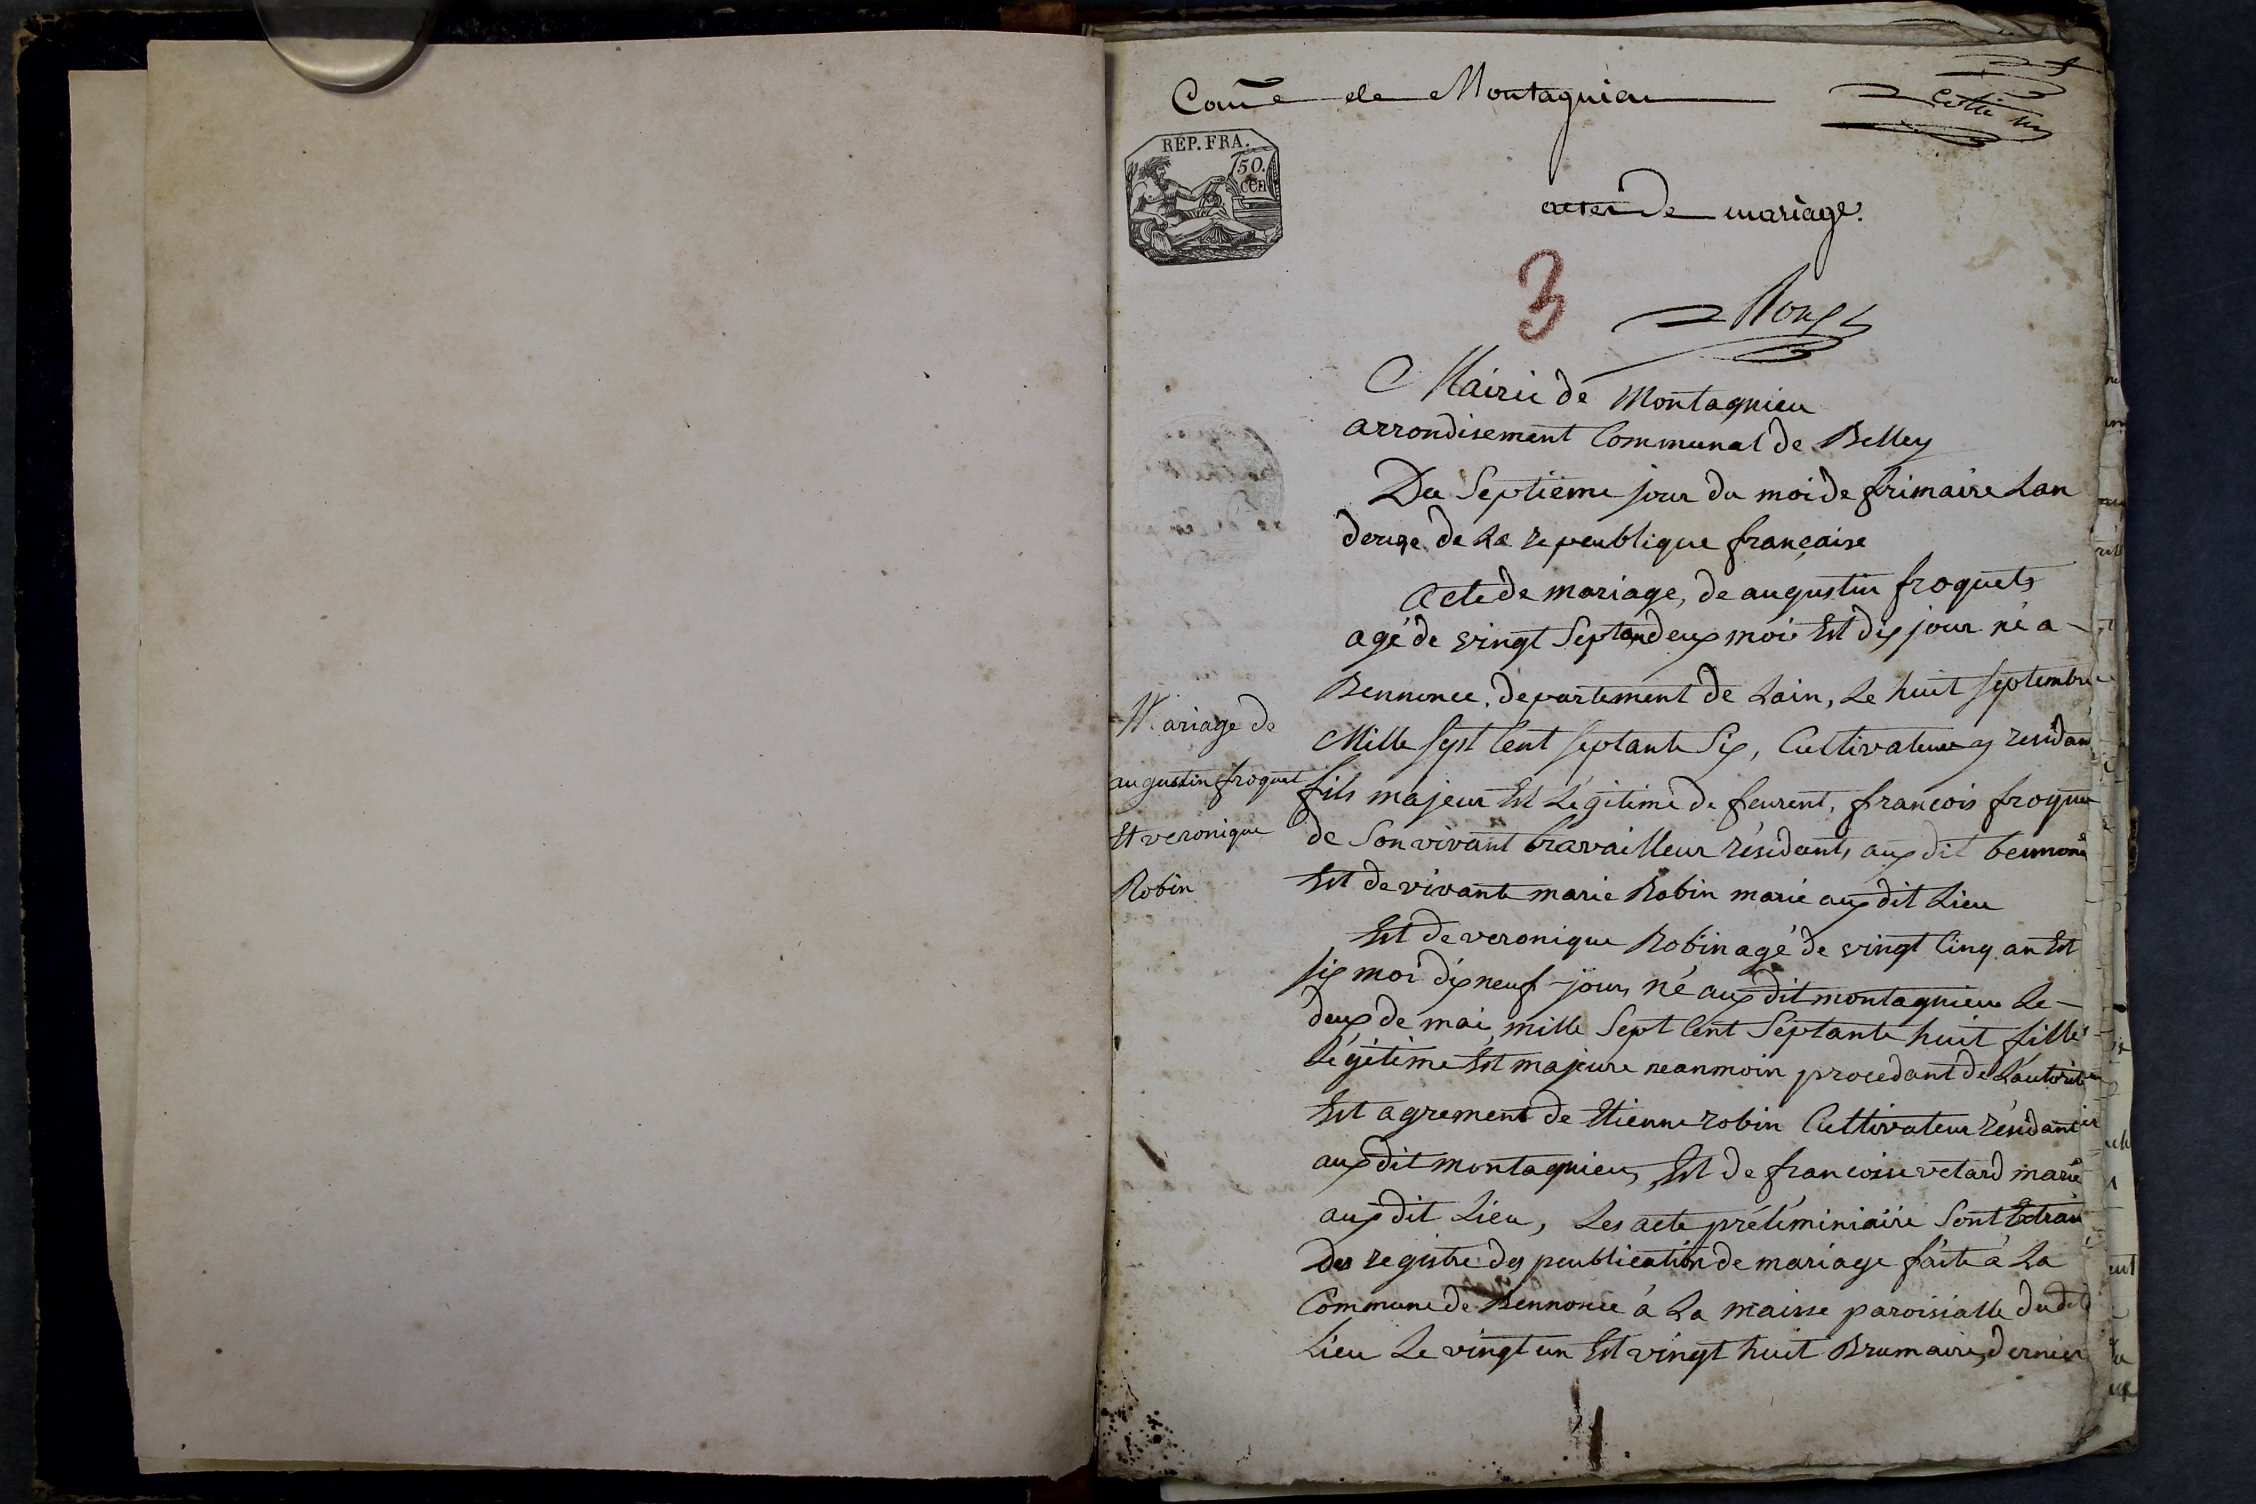 Com̃e de Montagnieu
REP. FRA.
50.
CEN
actes de mariage.
3
Mairie de Montagnieu
arrondisement Communal de Belley
Du Septieme jour du moi de frimaire Lan
douze de La republique française
Acte de mariage, de augustin froquet
agé de vingt Sept an deux moi Est dix jour né a
Bennonce, departement de Lain, Le huit septembre
Mille sept Cent septante Six, Cultivateur y residan
fils majeur Est Légitime de feurent, francois froque
de Son vivant travailleur résidant, aux dit bennonce
Est de vivante marie Robin marié aux dit Lieu
Est de veronique Robin agé de vingt Cinq an Est
six moi dix neuf jour, né aux dit montagnieu Le
deux de mai, mille Sept Cent Septante huit fille
Légitime Est majeure neanmoin procedant de L'autorité
Est agrement de Etienne robin Cultivateur résidant
aux dit montagnieu, Est de francoise vetard marié
aux dit Lieu, Les acte préliminiaire Sont Extrai
Des registre des peublication de mariage faite à La
Commune de Bennonce à La maisse paroisialle du dit
Lieu Le vingt un Est vingt huit Brumaire, dernier
Mariage de
augustin froquet
Et veronique
Robin